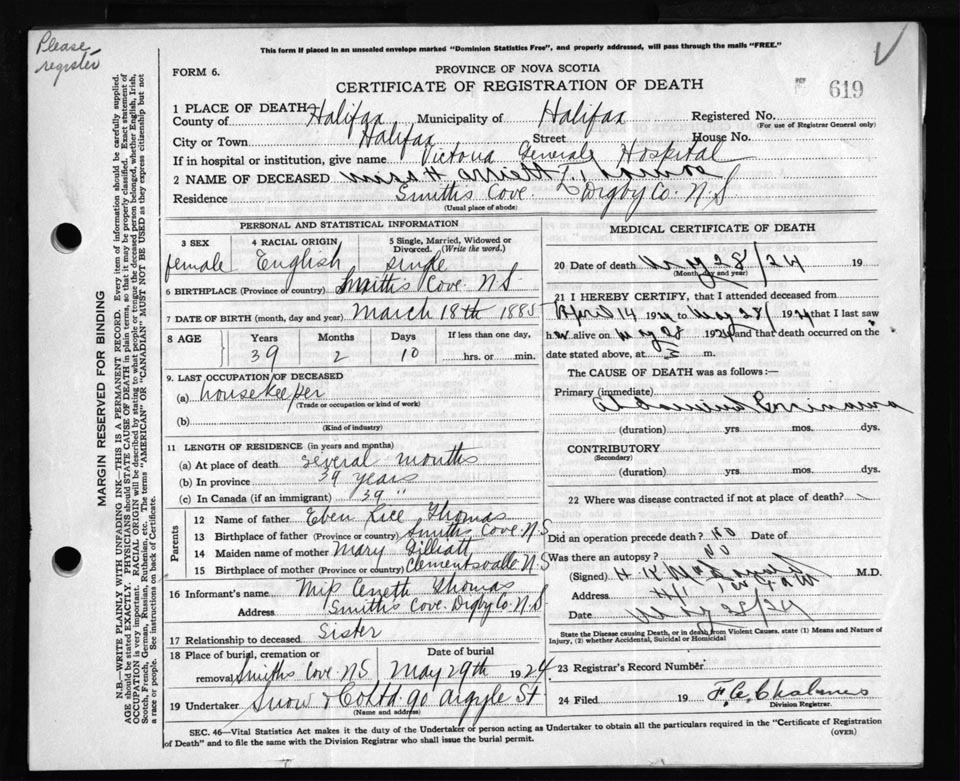 Please
register
This form if placed in an unsealed envelope marked "Dominion Statistics Free", and properly addressed, will pass through the mails "FREE."
FORM 6.
PROVINCE OF NOVA SCOTIA
CERTIFICATE OF REGISTRATION OF DEATH
619
1 PLACE OF DEATH
County of Halifax Municipality of Halifax Registered No.
(For use of Registrar General only)
City or Town Halifax Street House No.
If in hospital or institution, give name Victoria General Hospital
2 NAME OF DECEASED Miss H
Residence Smiths Cove Digby Co. N.S
(Usual place of abode)
PERSONAL AND STATISTICAL INFORMATION
3 SEX 4 RACIAL ORIGIN 5 Single, Married, Widowed or Divorced. (Write the word.)
female English single
6 BIRTHPLACE (Province or country) Smiths Cove N.S.
7 DATE OF BIRTH (month, day and year) March 18th 1885
8 AGE Years Months Days If less than one day,
39 2 10 hrs. or min.
9. LAST OCCUPATION OF DECEASED
(a) housekeeper
(Trade or occupation or kind of work)
(b)
(Kind of industry)
11 LENGTH OF RESIDENCE (in years and months)
(a) At place of death several months
(b) In province 39 years
(c) In Canada (if an immigrant) 39 "
Parents
12 Name of father Eben Rice Thomas
13 Birthplace of father (Province or country) Smiths Cove. N.S
14 Maiden name of mother Mary Gilliatt
15 Birthplace of mother (Province or country) Clementsvalle N.S
16 Informant's name Thomas
Address Smiths Cove. Digby Co. N.S.
17 Relationship to deceased Sister
18 Place of burial, cremation or Date of burial
removal Smiths Cove. N.S May 29th 1924
19 Undertaker Snow & Co Ltd. 90 Argyle St
(Name and address)
MEDICAL CERTIFICATE OF DEATH
20 Date of death May 28/24 19
(Month, day and year)
21 I HEREBY CERTIFY, that I attended deceased from
April 14 1924 to May 28 1924 that I last saw
her alive on May 28 1924 and that death occurred on the
date stated above, at m.
The CAUSE OF DEATH was as follows:—
Primary (immediate)
(duration) yrs. mos. dys.
CONTRIBUTORY
(Secondary)
(duration) yrs. mos. dys.
22 Where was disease contracted if not at place of death?
Did an operation precede death? No Date of
Was there an autopsy? No
(Signed) M.D.
Address
Date May 28/24
State the Disease causing Death, or in death from Violent Causes, state (1) Means and Nature of
Injury, (2) whether Accidental, Suicidal or Homicidal
23 Registrar's Record Number
24 Filed 19
Division Registrar.
SEC. 46—Vital Statistics Act makes it the duty of the Undertaker or person acting as Undertaker to obtain all the particulars required in the "Certificate of Registration
of Death" and to file the same with the Division Registrar who shall issue the burial permit.
(OVER)
MARGIN RESERVED FOR BINDING
N.B.—WRITE PLAINLY WITH UNFADING INK—THIS IS A PERMANENT RECORD. Every item of information should be carefully supplied.
AGE should be stated EXACTLY. PHYSICIANS should STATE CAUSE OF DEATH in plain terms, so that it may be properly classified. Exact statement of
OCCUPATION is very important. RACIAL ORIGIN will be described by stating to what people or tongue the deceased person belonged, whether English, Irish,
Scotch, French, German, Russian, Ruthenian, etc. The terms "AMERICAN" or "CANADIAN" MUST NOT BE USED as they express citizenship but not
a race or people. See instructions on back of Certificate.